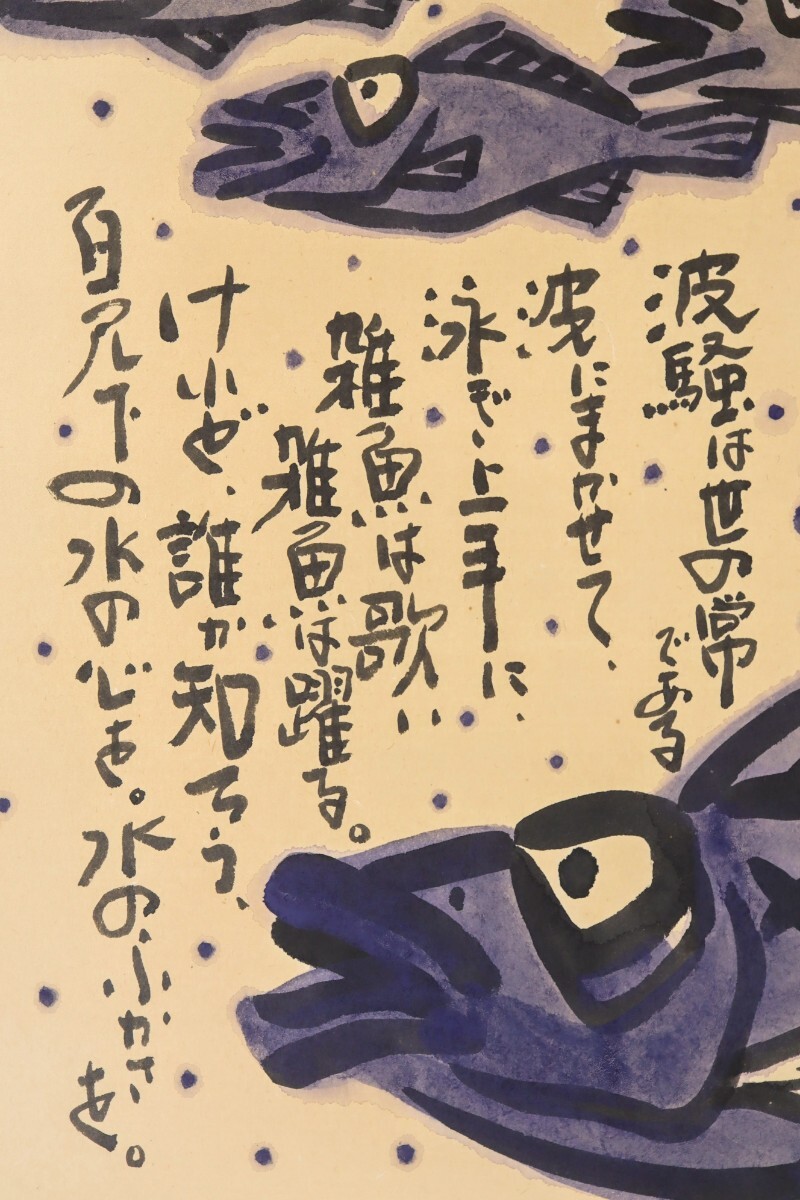 波騒は世の常
である
波にまかせて、
泳ぎ上手に、
雑魚は歌い
雑魚は躍る。
けれど、誰か知ろう、
百尺下の水の心を。水のふかさを。